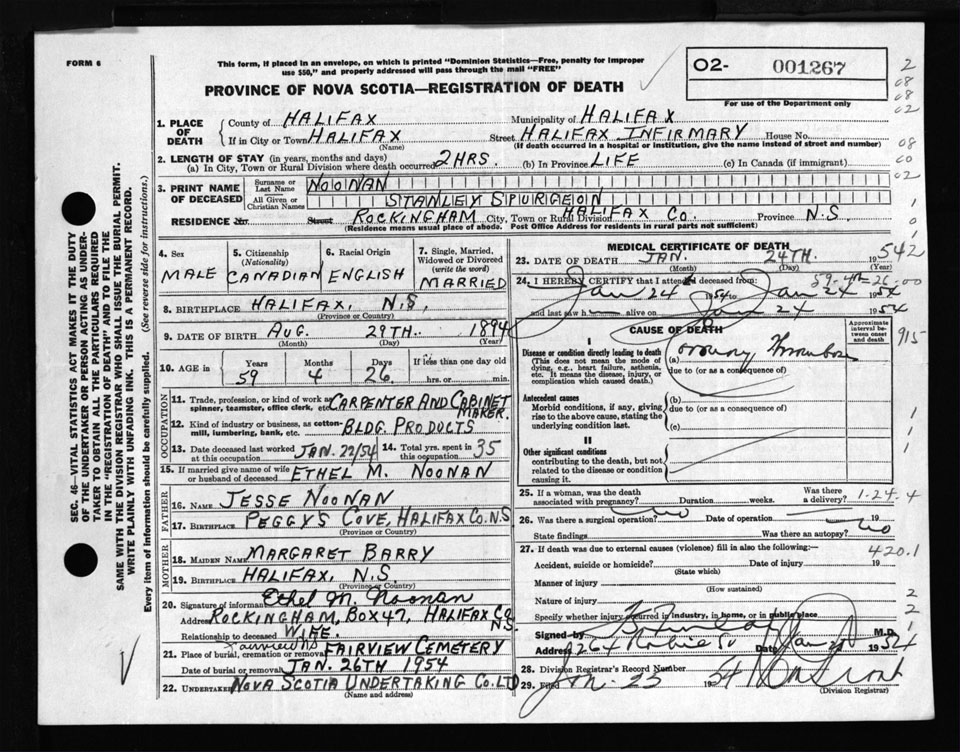 FORM 6
This form, if placed in an envelope, on which is printed "Dominion Statistics—Free, penalty for improper
use $50," and properly addressed will pass through the mail "FREE"
PROVINCE OF NOVA SCOTIA—REGISTRATION OF DEATH
O2- 001267
For use of the Department only
2
08
08
02
08
00
02
SEC. 46 — VITAL STATISTICS ACT MAKES IT THE DUTY
OF THE UNDERTAKER OR PERSON ACTING AS UNDER-
TAKER TO OBTAIN ALL THE PARTICULARS REQUIRED
IN THE "REGISTRATION OF DEATH" AND TO FILE THE
SAME WITH THE DIVISION REGISTRAR WHO SHALL ISSUE THE BURIAL PERMIT.
WRITE PLAINLY WITH UNFADING INK. THIS IS A PERMANENT RECORD.
Every item of information should be carefully supplied. (See reverse side for instructions.)
1. PLACE OF DEATH
County of HALIFAX Municipality of HALIFAX
If in City or Town HALIFAX (Name) Street HALIFAX INFIRMARY House No.
(If death occurred in a hospital or institution, give the name instead of street and number)
2. LENGTH OF STAY (in years, months and days)
(a) In City, Town or Rural Division where death occurred 2 HRS. (b) In Province LIFE (c) In Canada (if immigrant)
3. PRINT NAME OF DECEASED
Surname or Last Name NOONAN
All Given or Christian Names STANLEY SPURGEON
RESIDENCE No. Street ROCKINGHAM City, Town or Rural Division HALIFAX CO. Province N.S.
(Residence means usual place of abode. Post Office Address for residents in rural parts not sufficient)
4. Sex MALE
5. Citizenship (Nationality) CANADIAN
6. Racial Origin ENGLISH
7. Single, Married, Widowed or Divorced (write the word) MARRIED
8. BIRTHPLACE HALIFAX, N.S.
(Province or Country)
9. DATE OF BIRTH AUG. 29TH. 1894
(Month) (Day) (Year)
10. AGE in Years 59 Months 4 Days 26 If less than one day old hrs. or min.
OCCUPATION
11. Trade, profession, or kind of work as spinner, teamster, office clerk, etc. CARPENTER AND CABINET MAKER.
12. Kind of industry or business, as cotton-mill, lumbering, bank, etc. BLDG. PRODUCTS
13. Date deceased last worked at this occupation JAN. 22/54 14. Total yrs. spent in this occupation 35
15. If married give name of wife or husband of deceased ETHEL M. NOONAN
FATHER
16. NAME JESSE NOONAN
17. BIRTHPLACE PEGGYS COVE, HALIFAX CO. N.S.
(Province or Country)
MOTHER
18. MAIDEN NAME MARGARET BARRY
19. BIRTHPLACE HALIFAX, N.S.
(Province or Country)
20. Signature of informant Ethel M. Noonan
Address ROCKINGHAM, BOX 47, HALIFAX CO. N.S.
Relationship to deceased WIFE.
21. Place of burial, cremation or removal FAIRVIEW CEMETERY
Date of burial or removal JAN. 26TH 1954
22. Undertaker NOVA SCOTIA UNDERTAKING CO. LTD
(Name and address)
MEDICAL CERTIFICATE OF DEATH
23. DATE OF DEATH JAN. 24TH. 1954
(Month) (Day) (Year)
24. I HEREBY CERTIFY that I attended deceased from:
59-4m-26-00
Jan 24 1954 to Jan 24 1954
and last saw h alive on Jan 24 1954
CAUSE OF DEATH
Approximate interval between onset and death
915
I
Disease or condition directly leading to death
(This does not mean the mode of dying, e.g., heart failure, asthenia, etc. It means the disease, injury, or complication which caused death.)
(a) Coronary Thrombosis
due to (or as a consequence of)
Antecedent causes
Morbid conditions, if any, giving rise to the above cause, stating the underlying condition last.
(b)
due to (or as a consequence of)
(c)
II
Other significant conditions
contributing to the death, but not related to the disease or condition causing it.
25. If a woman, was the death associated with pregnancy? Duration weeks. Was there a delivery? 1-24-4
26. Was there a surgical operation? no Date of operation 19
State findings Was there an autopsy? no
27. If death was due to external causes (violence) fill in also the following:— 420.1
Accident, suicide or homicide? Date of injury 19
(State which)
Manner of injury
(How sustained)
Nature of injury
Specify whether injury occurred in industry, in home, or in public place
Signed by M.D.
Address Date Jan 1954
28. Division Registrar's Record Number
29. Filed Jan. 25 1954
(Division Registrar)